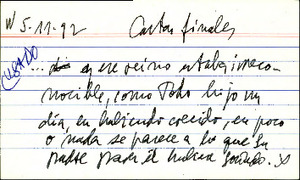 W 5-11-92 Cartas finales
USADO
... ese reino estaba irreco-
nocible, como todo hijo un
día, en habiendo crecido, en poco
o nada se parece a lo que su
padre para él hubiera soñado.